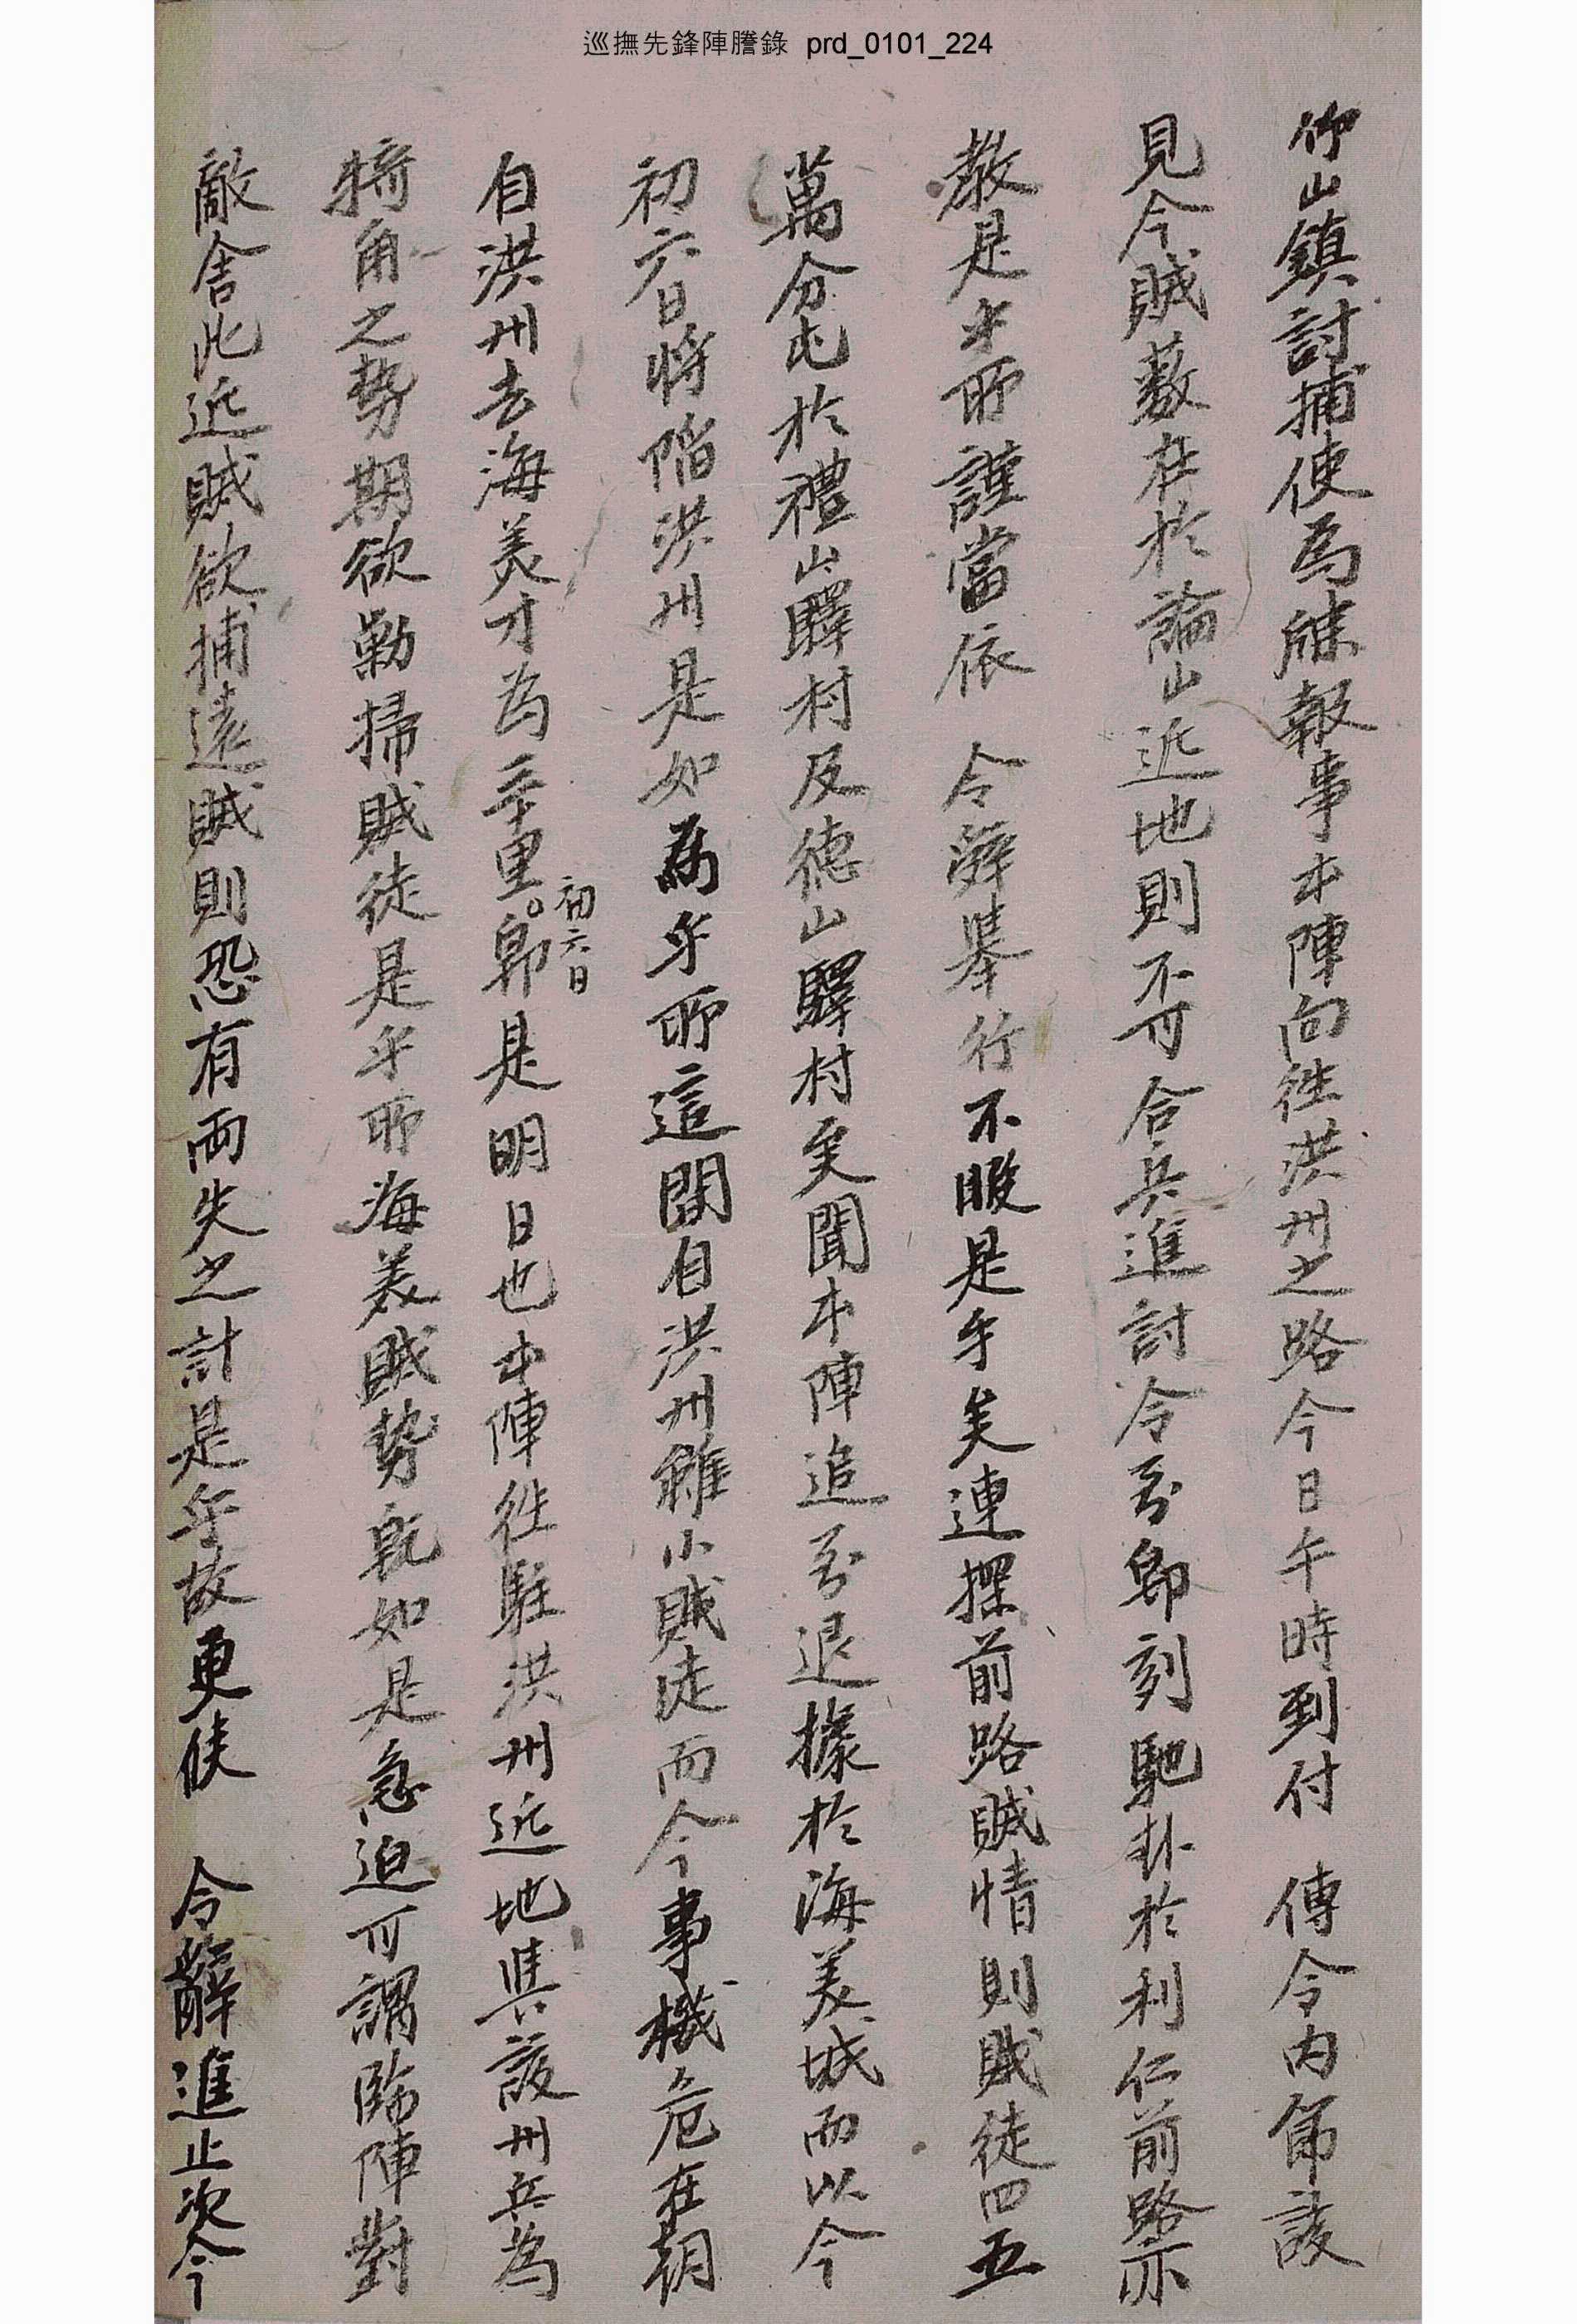 巡撫先鋒陣謄錄 prd_0101_224
竹山鎮討捕使爲牒報事本陣向往洪州之路今日午時到付 傳令內節該
見今賊藪在於論山近地則不可合兵進討令至卽刻馳赴於利仁前路亦
教是乎所謹當依 令辭擧行不暇是乎矣連探前路賊情則賊徒四五
萬分屯於禮山驛村及德山驛村矣聞本陣追至退據於海美城而以今
初六日將陷洪州是如爲乎所這間自洪州雖小賊徒而今事機危在朝
自洪州去海美才爲三十里。卽是明日也本陣往駐洪州近地與該州兵爲
初六日
犄角之勢期欲勦掃賊徒是乎所海美賊勢旣如是急迫可謂臨陣對
敵舍此近賊欲捕遠賊則恐有兩失之計是乎故更俟 令辭進止次今